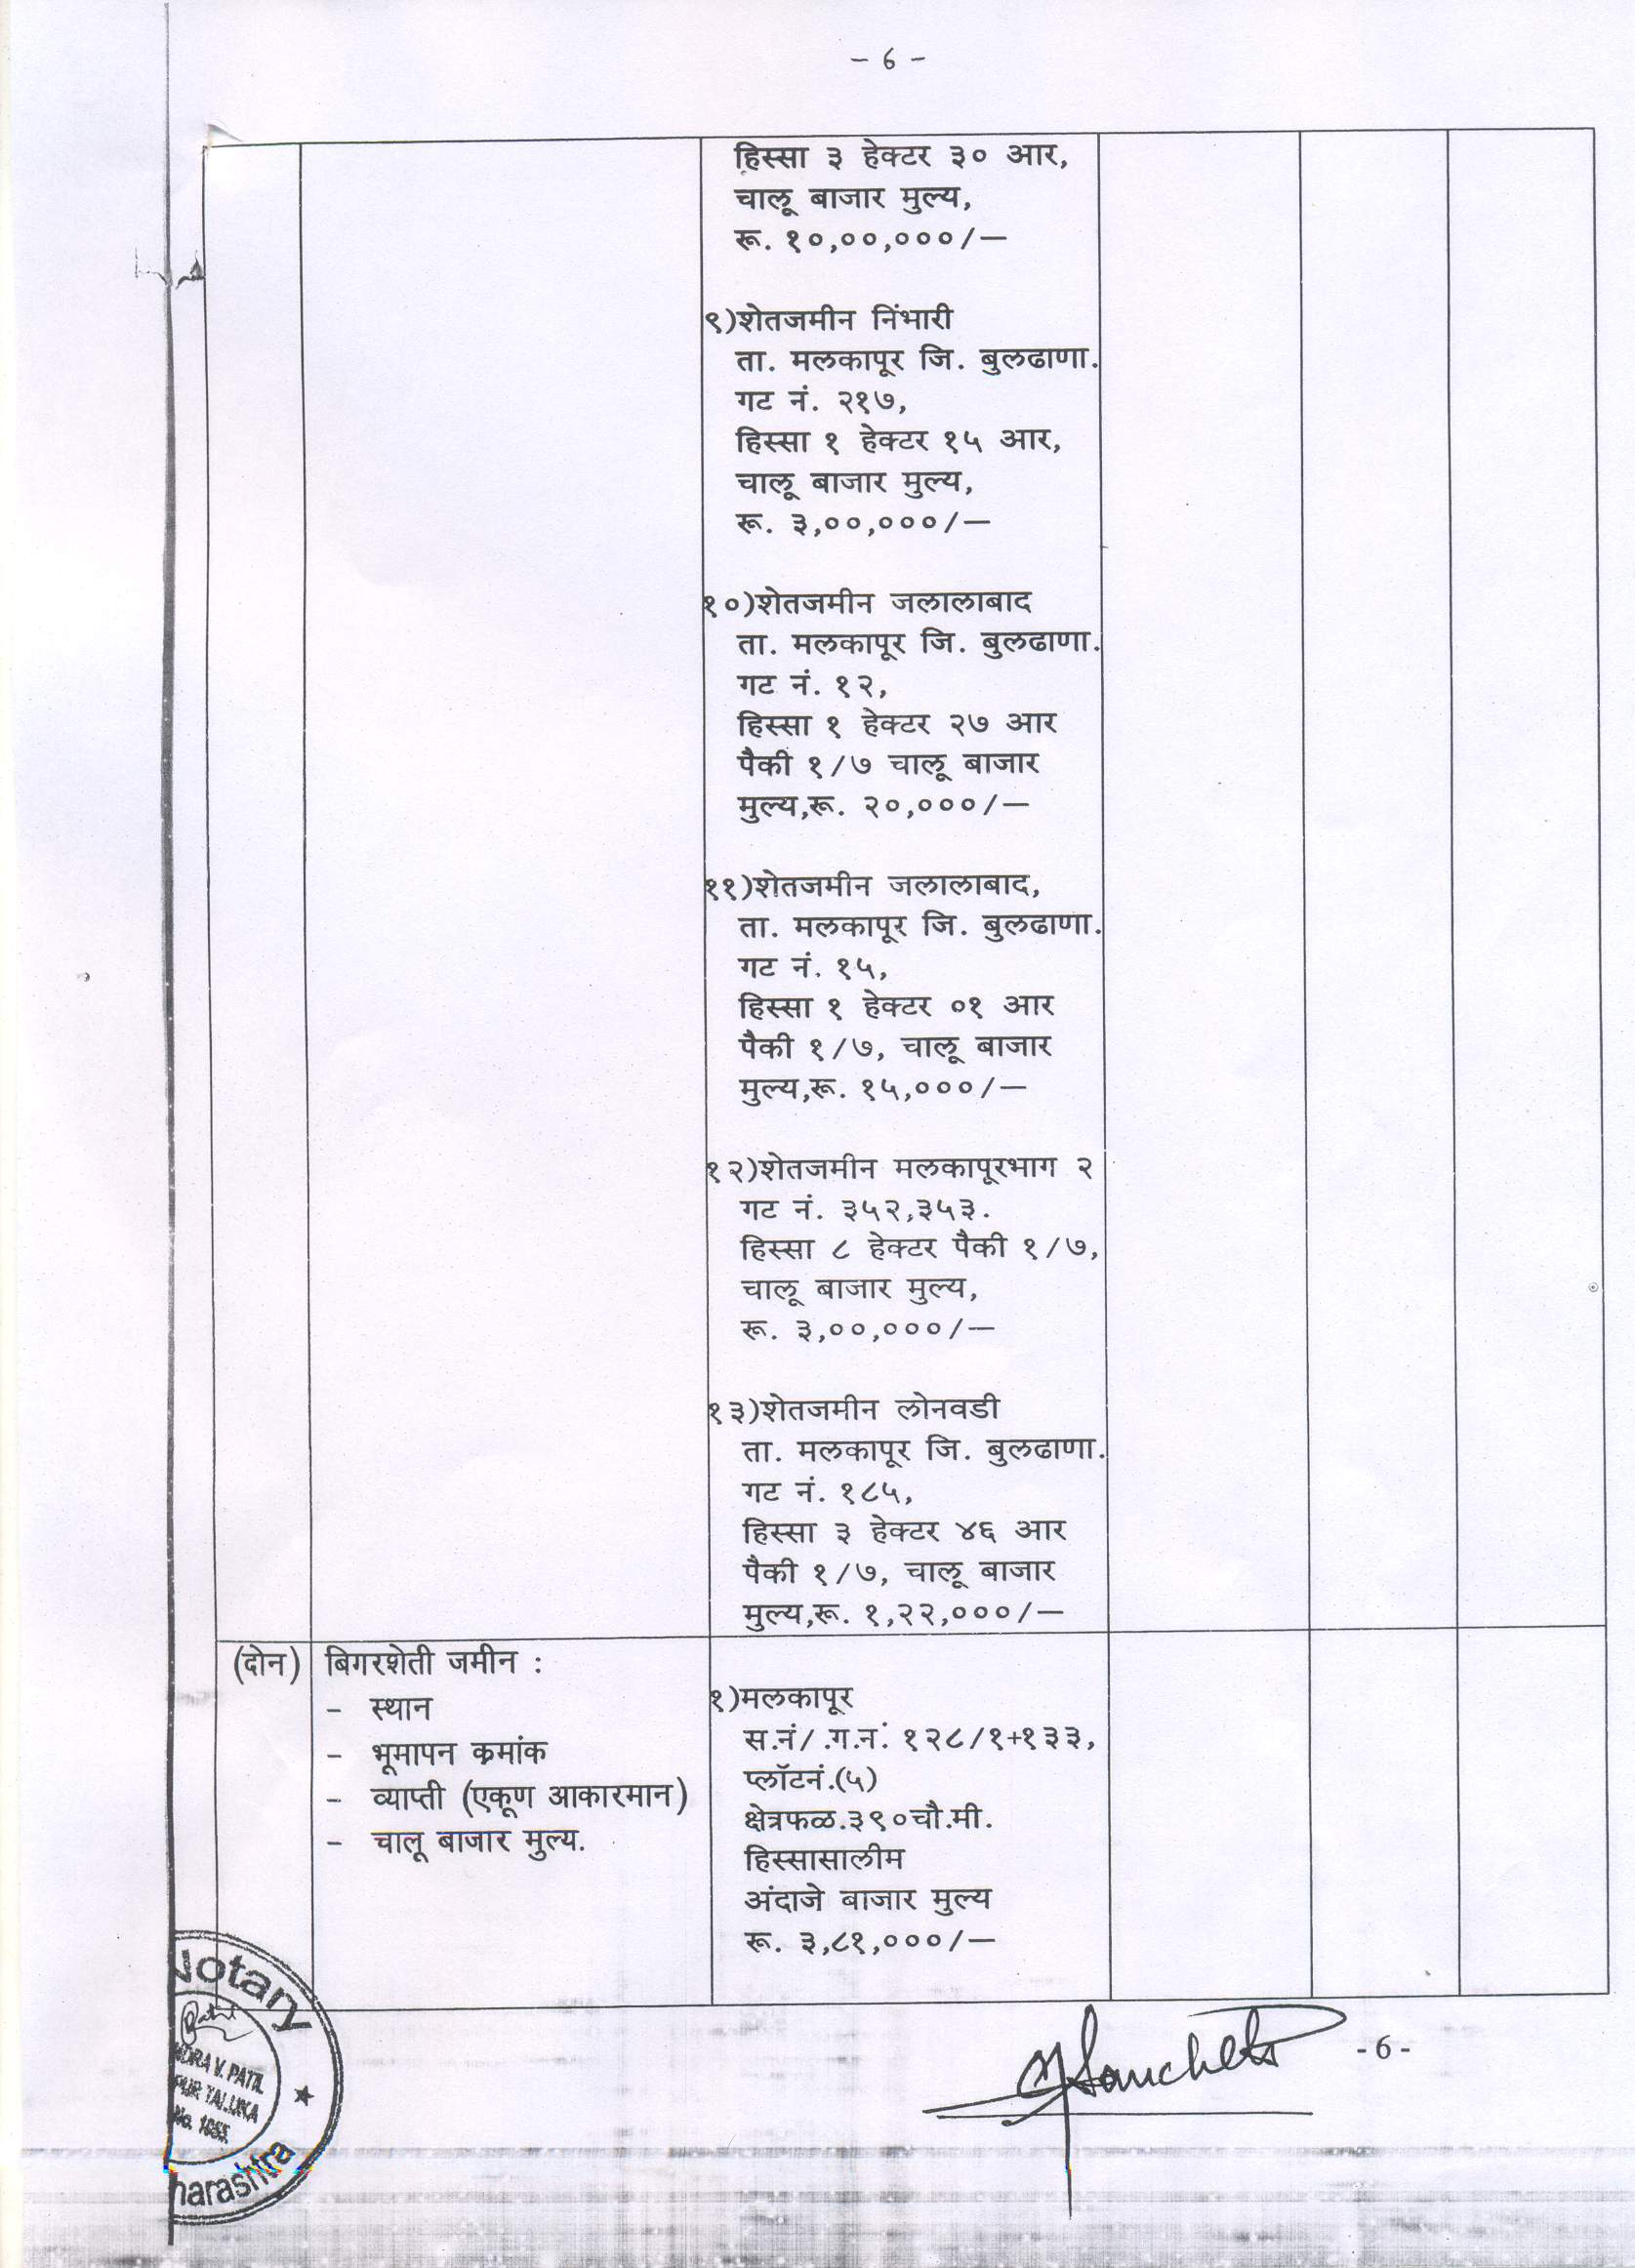 - 6 -
हिस्सा ३ हेक्टर ३० आर,
चालू बाजार मुल्य,
रू. १०,००,०००/—
९)शेतजमीन निंभारी
ता. मलकापूर जि. बुलढाणा.
गट नं. २१७,
हिस्सा १ हेक्टर १५ आर,
चालू बाजार मुल्य,
रू. ३,००,०००/—
१०)शेतजमीन जलालाबाद
ता. मलकापूर जि. बुलढाणा.
गट नं. १२,
हिस्सा १ हेक्टर २७ आर
पैकी १/७ चालू बाजार
मुल्य,रू. २०,०००/—
११)शेतजमीन जलालाबाद,
ता. मलकापूर जि. बुलढाणा.
गट नं. १५,
हिस्सा १ हेक्टर ०१ आर
पैकी १/७, चालू बाजार
मुल्य,रू. १५,०००/—
१२)शेतजमीन मलकापूरभाग २
गट नं. ३५२,३५३.
हिस्सा ८ हेक्टर पैकी १/७,
चालू बाजार मुल्य,
रू. ३,००,०००/—
१३)शेतजमीन लोनवडी
ता. मलकापूर जि. बुलढाणा.
गट नं. १८५,
हिस्सा ३ हेक्टर ४६ आर
पैकी १/७, चालू बाजार
मुल्य,रू. १,२२,०००/—
(दोन) बिगरशेती जमीन :
- स्थान
- भूमापन क्रमांक
- व्याप्ती (एकूण आकारमान)
- चालू बाजार मुल्य.
१)मलकापूर
स.नं/ .ग.नं: १२८/१+१३३,
प्लॉटनं.(५)
क्षेत्रफळ.३९०चौ.मी.
हिस्सासालीम
अंदाजे बाजार मुल्य
रू. ३,८१,०००/—
Notary
NDRA V. PATIL
PUR TALUKA
No. 1055
harashtra
- 6 -